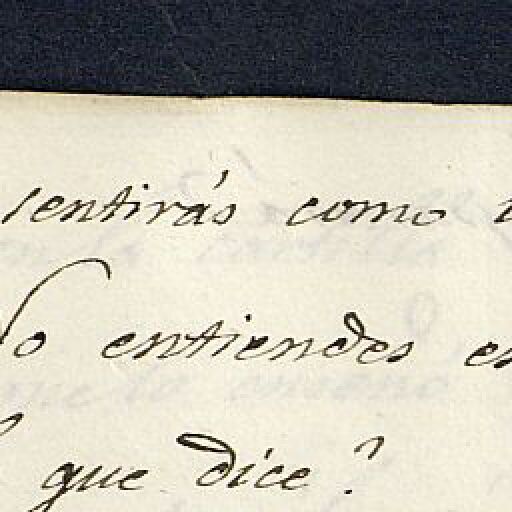 sentirás como
No entiendes
que dice?